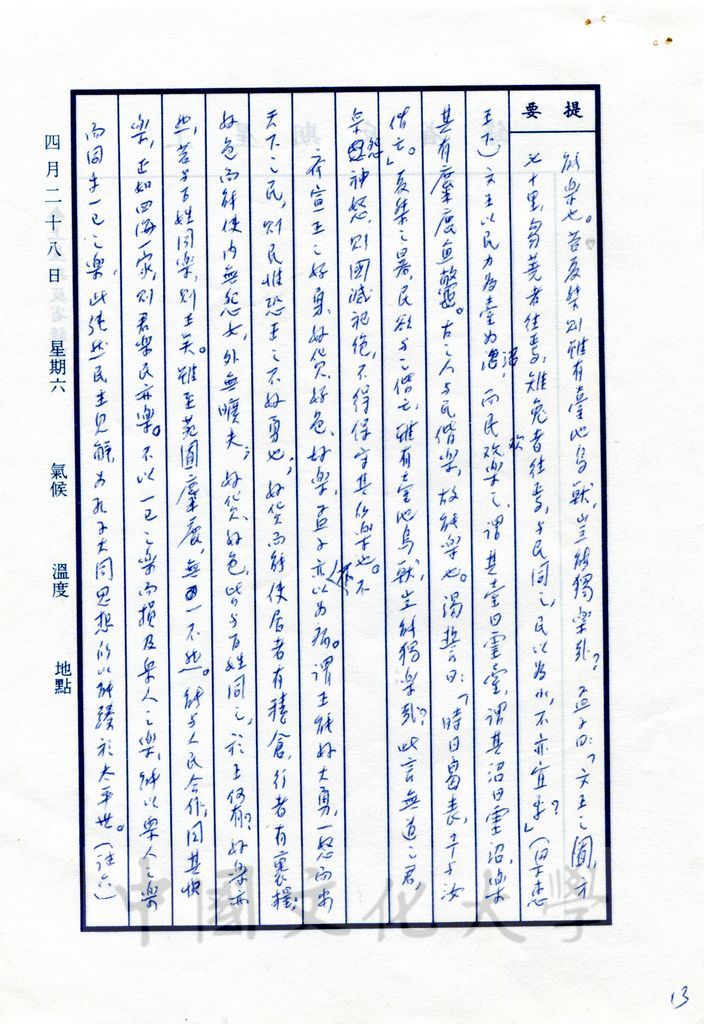 提要
能樂也。若夏桀則雖有臺池鳥獸，豈能獨樂哉？孟子曰：「文王之囿，方
七十里，芻蕘者往焉，雉兔者往焉，与民同之，民以為小，不亦宜乎？」（梁惠
王下）文王以民力為臺為沼，而民歡樂之，謂其臺曰靈臺，謂其沼曰靈沼，樂
其有麋鹿魚鱉。古之人与民偕樂，故能樂也。湯誓曰：「時日曷喪，予与汝
偕亡。」夏桀之暴，民欲与之偕亡，雖有臺池鳥獸，豈能獨樂哉？此言無道之君，
眾怨神怒，則國滅祀絕，不得保守其所樂也。
齊宣王之好勇、好貨、好色、好樂，孟子亦不以為病。謂王能好大勇，一怒而安
天下之民，則民惟恐王之不好勇也；好貨而能使居者有積倉，行者有裹糧；
好色而能使內無怨女，外無曠夫；好貨、好色，皆与百姓同之，於王何有？好樂亦
然，若与百姓同樂，則王矣。雖至苑囿麋鹿，無一不然。能与人民合作，同其快
樂，正如四海一家，則君樂民亦樂。不以一己之樂而損及眾人之樂，能以眾人之樂
而同乎一己之樂，此號然民主見解，為孔子大同思想所以能臻於太平世。（註六）
四月二十八日 星期六 氣候 溫度 地點
中國文化大學
13